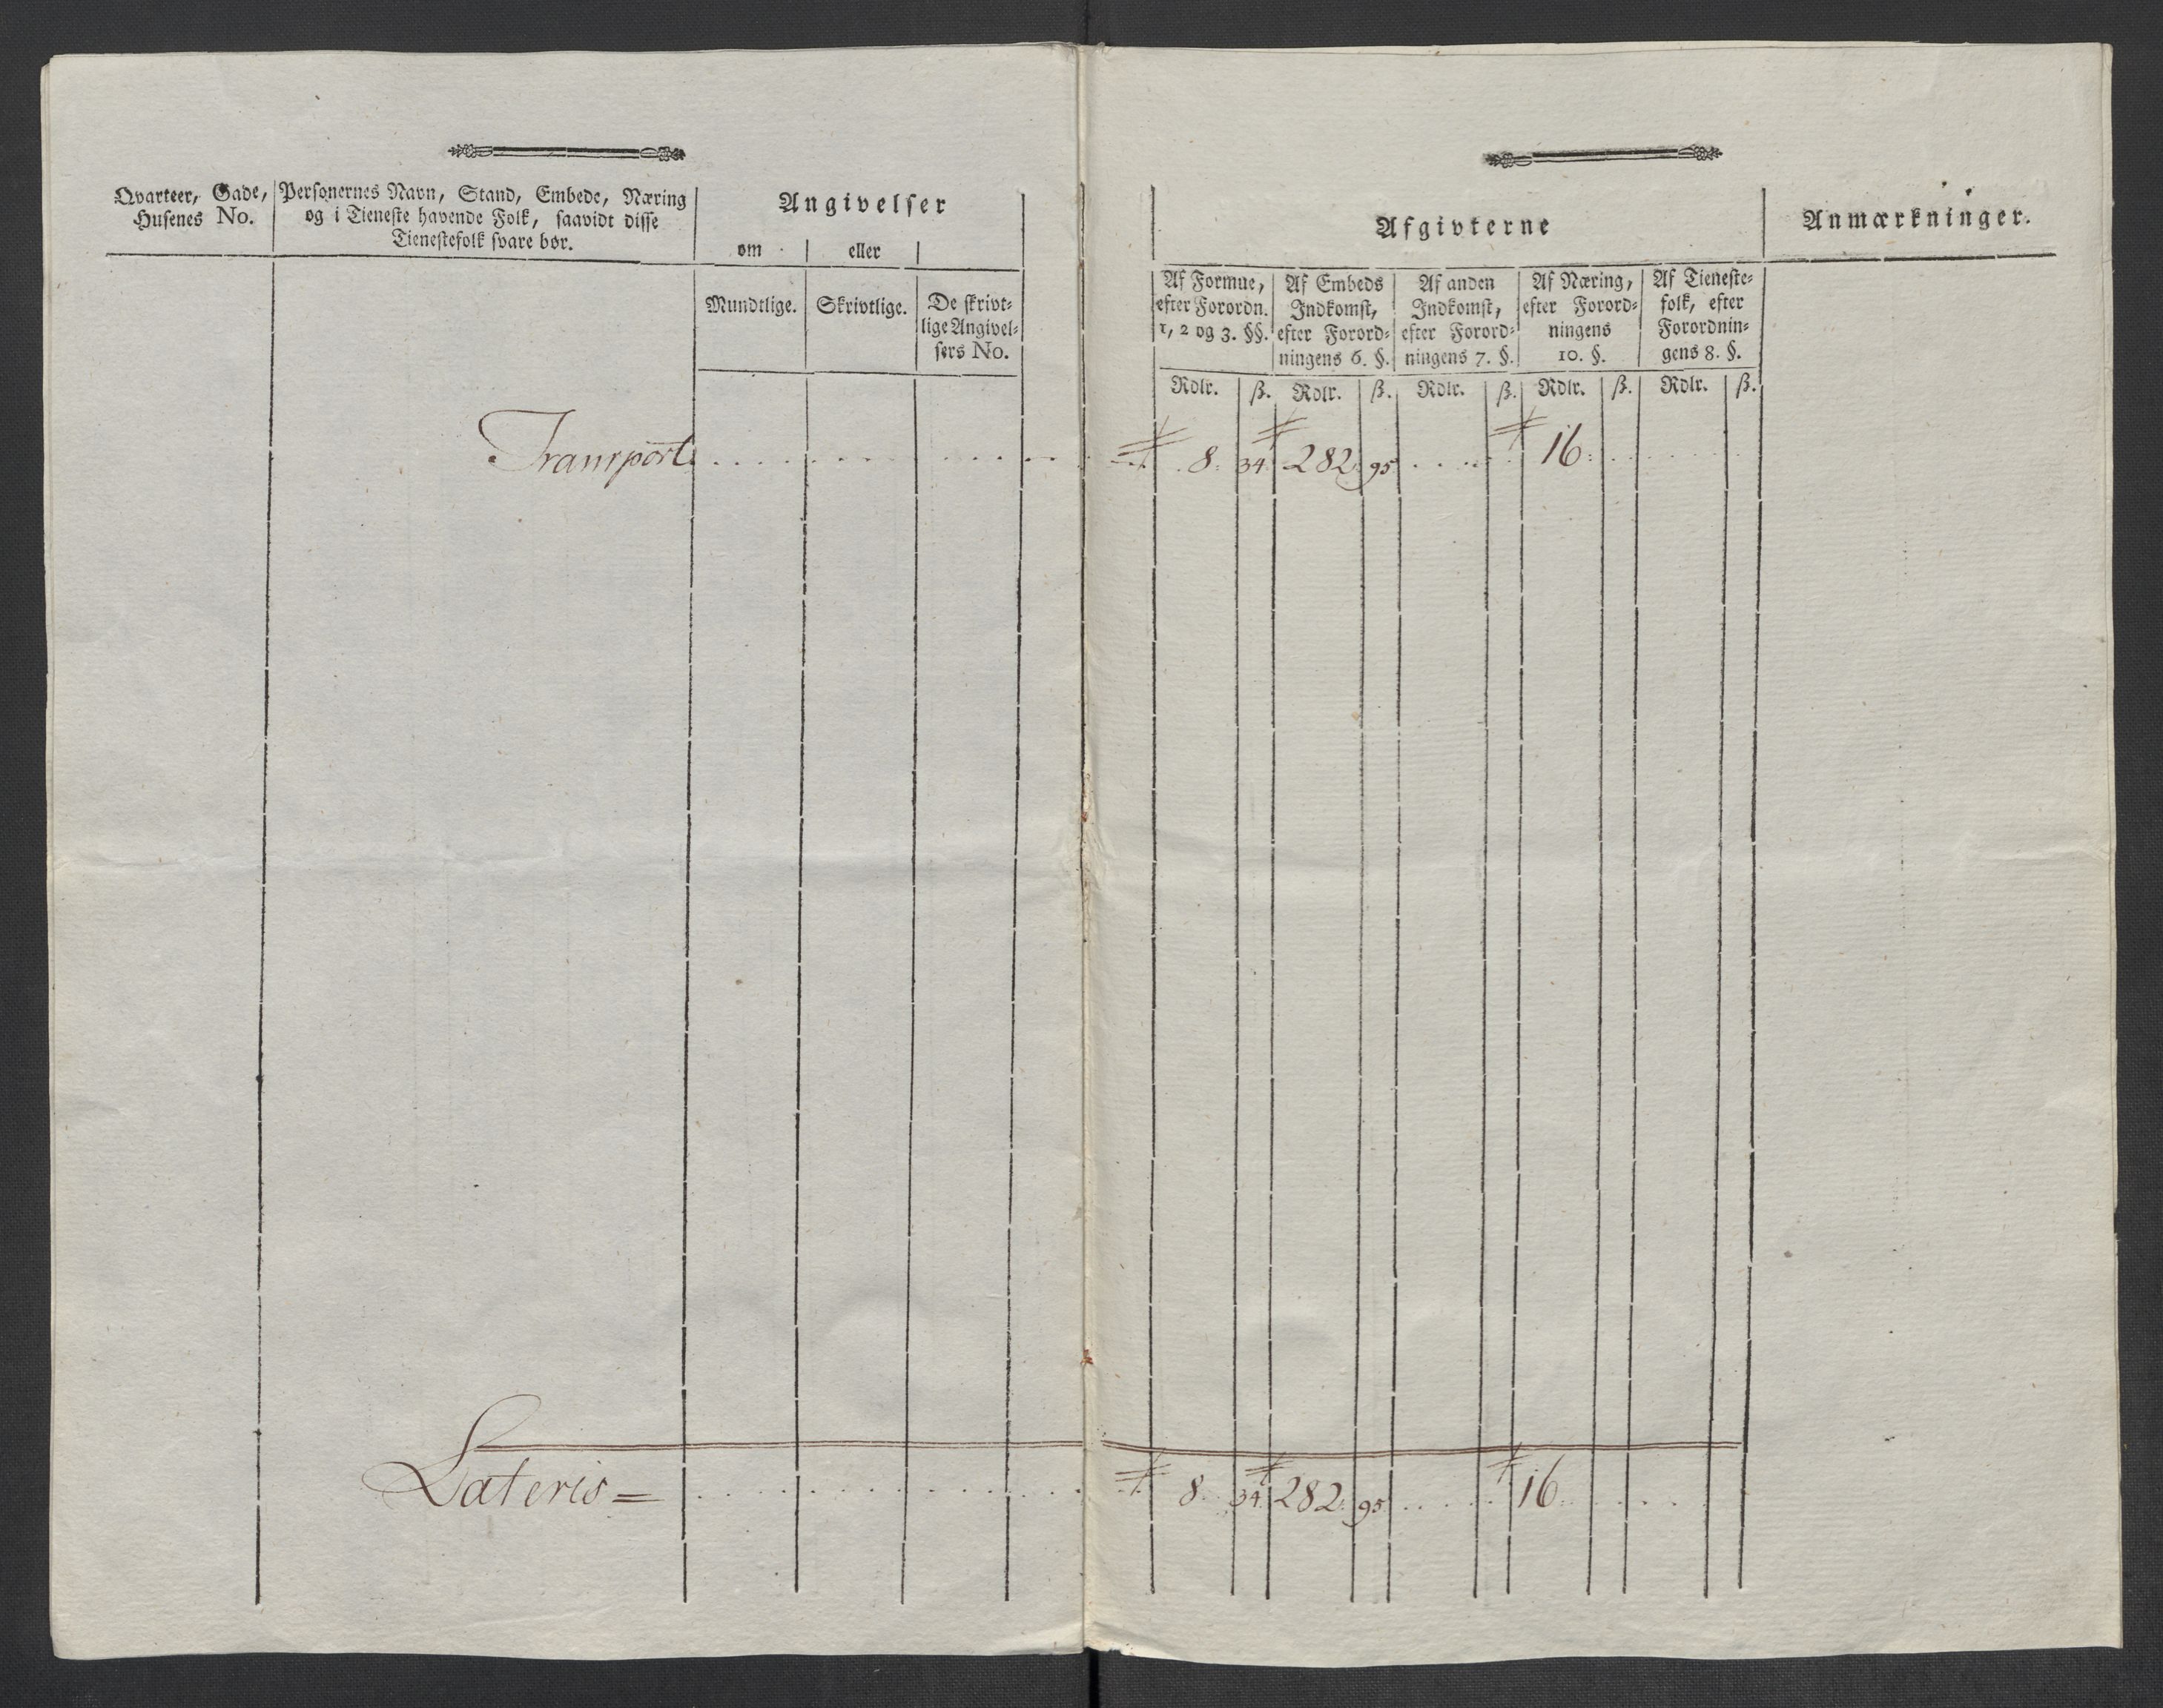 Qvarteer, Gade,
Husenes No.
Personernes Navn, Stand, Embede, Næring
og i Tieneste havende Folk, saavidt disse
Tienestefolk svare bør.
Angivelser
om eller
Mundtlige. Skrivtlige. De skrivt-
lige Angivel-
sers No.
Afgivterne
Anmærkninger.
Af Formue,
efter Forordn.
1, 2 og 3. §§.
Af Embeds
Indkomst,
efter Forord-
ningens 6. §.
Af anden
Indkomst,
efter Forord-
ningens 7. §.
Af Næring,
efter Forord-
ningens
10. §.
Af Tieneste-
folk, efter
Forordnin-
gens 8. §.
Rdlr. ß. Rdlr. ß. Rdlr. ß. Rdlr. ß. Rdlr. ß.
Transport 8: 34: 282: 95 16:
Lateris = 8: 34: 282: 95 16: